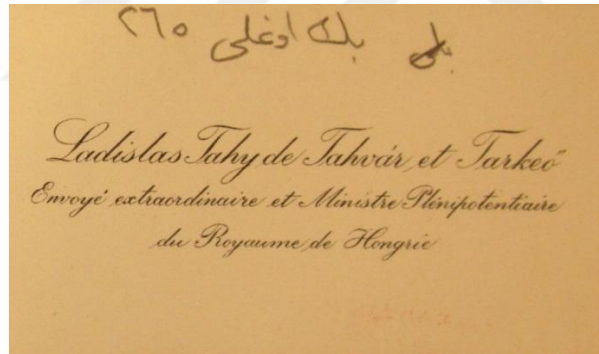 بك اوغلى ٢٦٥
Ladislas Tahy de Tahvár et Tarkeő
Envoyé extraordinaire et Ministre Plénipotentiaire
du Royaume de Hongrie